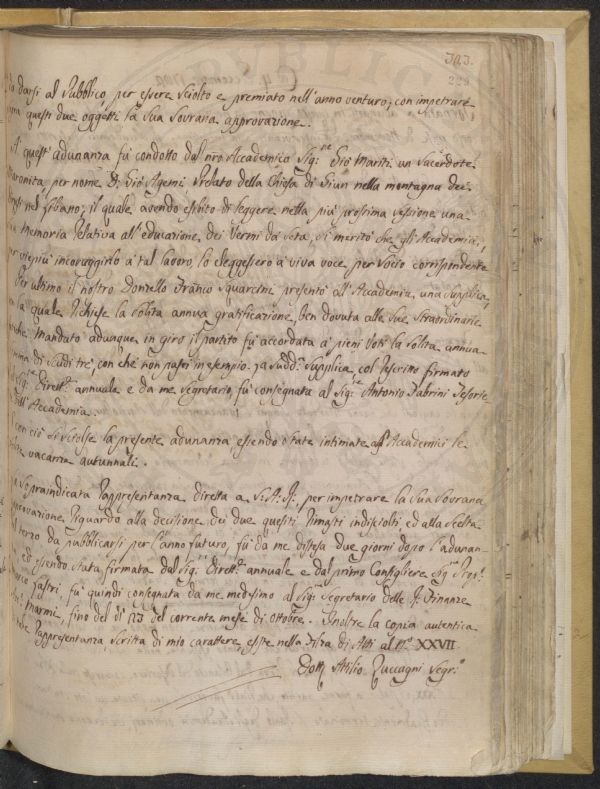 303.
da darsi al Pubblico per essere sciolto e premiato nell'anno venturo; con impetrare
questi due oggetti la Sua Sovrana approvazione.
A quest'adunanza fu condotto dal nro Accademico Sig:re Gio Mariti un Sacerdote
Maronita, per nome D: Gio Agemi Prelato della Chiesa di Giun nella montagna dei
Drusi nel Libano; il quale avendo esibito di leggere nella più prossima sessione una
sua Memoria relativa all'educazione dei Vermi da seta, si meritò che gli Accademici,
per viepiù incoraggirlo a tal lavoro, lo eleggessero a viva voce per Socio corrispondente
Per ultimo il nostro Donzello Franco Squarcini presentò all'Accademia una Supplica,
con la quale richiese la solita annua gratificazione, ben dovuta alle sue straordinarie
fatiche. Mandato adunque in giro il partito fu accordata a pieni voti la solita annua
somma di Scudi tre, con che non passi in esempio. La Sudd:a Supplica, col Rescritto firmato
dal Sig:re Dirett:e annuale e da me Segretario, fu consegnata al Sig:re Antonio Fabrini Tesorie
dell'Accademia.
E con ciò si sciolse la presente adunanza essendo state intimate agl'Accademici le
solite vacanze autunnali.
La sopraindicata Rappresentanza diretta a S: A: R: per impetrare la Sua Sovrana
approvazione riguardo alla decisione dei due quesiti rimasti indisciolti, ed alla scelta
del terzo da pubblicarsi per l'anno futuro, fu da me distesa due giorni dopo l'adunan-
za, ed essendo stata firmata dal Sig:re Dirett:e annuale e dal primo Consigliere Sig:re Prop:o
Marco Lastri, fu quindi consegnata da me medesimo al Sig:re Segretario delle R: Finanze
Marmi, fino del dì 123 del corrente mese di Ottobre. Inoltre la copia autentica
Rappresentanza, scritta di mio carattere, esiste nella Filza di Atti al N.o XXVII.
Dott: Atilio Zuccagni Segr:o